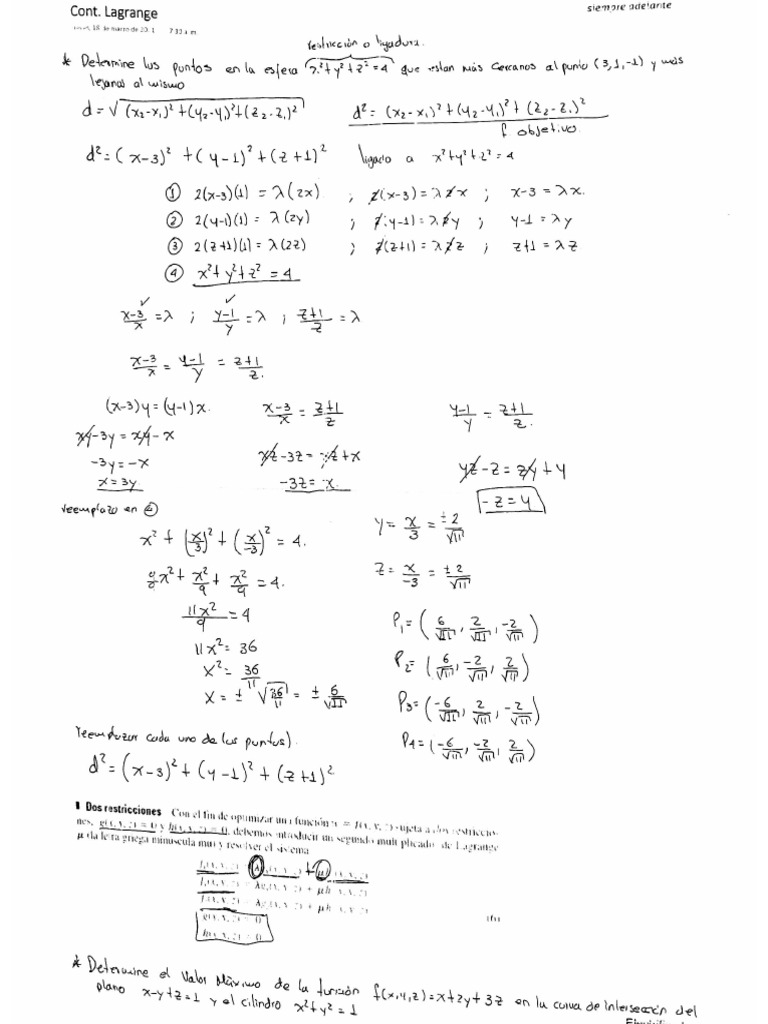 Cont. Lagrange
siempre adelante
restricción o ligadura.
* Determine los puntos en la esfera x²+y²+z²=4 que estan más cercanos al punto (3,1,-1) y mas
lejanos al mismo
d=√(x₂-x₁)²+(y₂-y₁)²+(z₂-z₁)² d²=(x₂-x₁)²+(y₂-y₁)²+(z₂-z₁)²
f objetivo.
d²=(x-3)²+(y-1)²+(z+1)² ligado a x²+y²+z²=4
① 2(x-3)(1)=λ(2x) ; 2(x-3)=λ2x ; x-3=λx.
② 2(y-1)(1)=λ(2y) ; 2(y-1)=λ2y ; y-1=λy
③ 2(z+1)(1)=λ(2z) ; 2(z+1)=λ2z ; z+1=λz
④ x²+y²+z²=4
✓ ✓
x-3/x=λ ; y-1/y=λ ; z+1/z=λ
x-3/x=y-1/y=z+1/z.
(x-3)y=(y-1)x. x-3/x=z+1/z y-1/y=z+1/z.
xy-3y=xy-x xz-3z=xz+x yz-z=zy+y
-3y=-x -3z=x. -z=y
x=3y
reemplazo en ④
x²+(x/3)²+(x/-3)²=4. y=x/3=±2/√11
9/9x²+x²/9+x²/9=4. z=x/-3=±2/√11
11x²/9=4 P₁=(6/√11, 2/√11, -2/√11)
11x²=36 P₂=(6/√11, -2/√11, 2/√11)
x²=36/11 P₃=(-6/√11, 2/√11, -2/√11)
x=±√36/11=±6/√11 P₄=(-6/√11, -2/√11, 2/√11)
reemplazar cada uno de los puntos).
d²=(x-3)²+(y-1)²+(z+1)²
Dos restricciones Con el fin de optimizar una función sujeta a dos restriccio-
nes, g(x, y, z) = 0 y h(x, y, z) = 0, debemos introducir un segundo multiplicador de Lagrange
μ (la letra griega minúscula mu) y resolver el sistema
g(x, y, z) = 0
h(x, y, z) = 0
* Determine el Valor Máximo de la función f(x,y,z)=x+2y+3z en la curva de intersección del
plano x-y+z=1 y el cilindro x²+y²=1